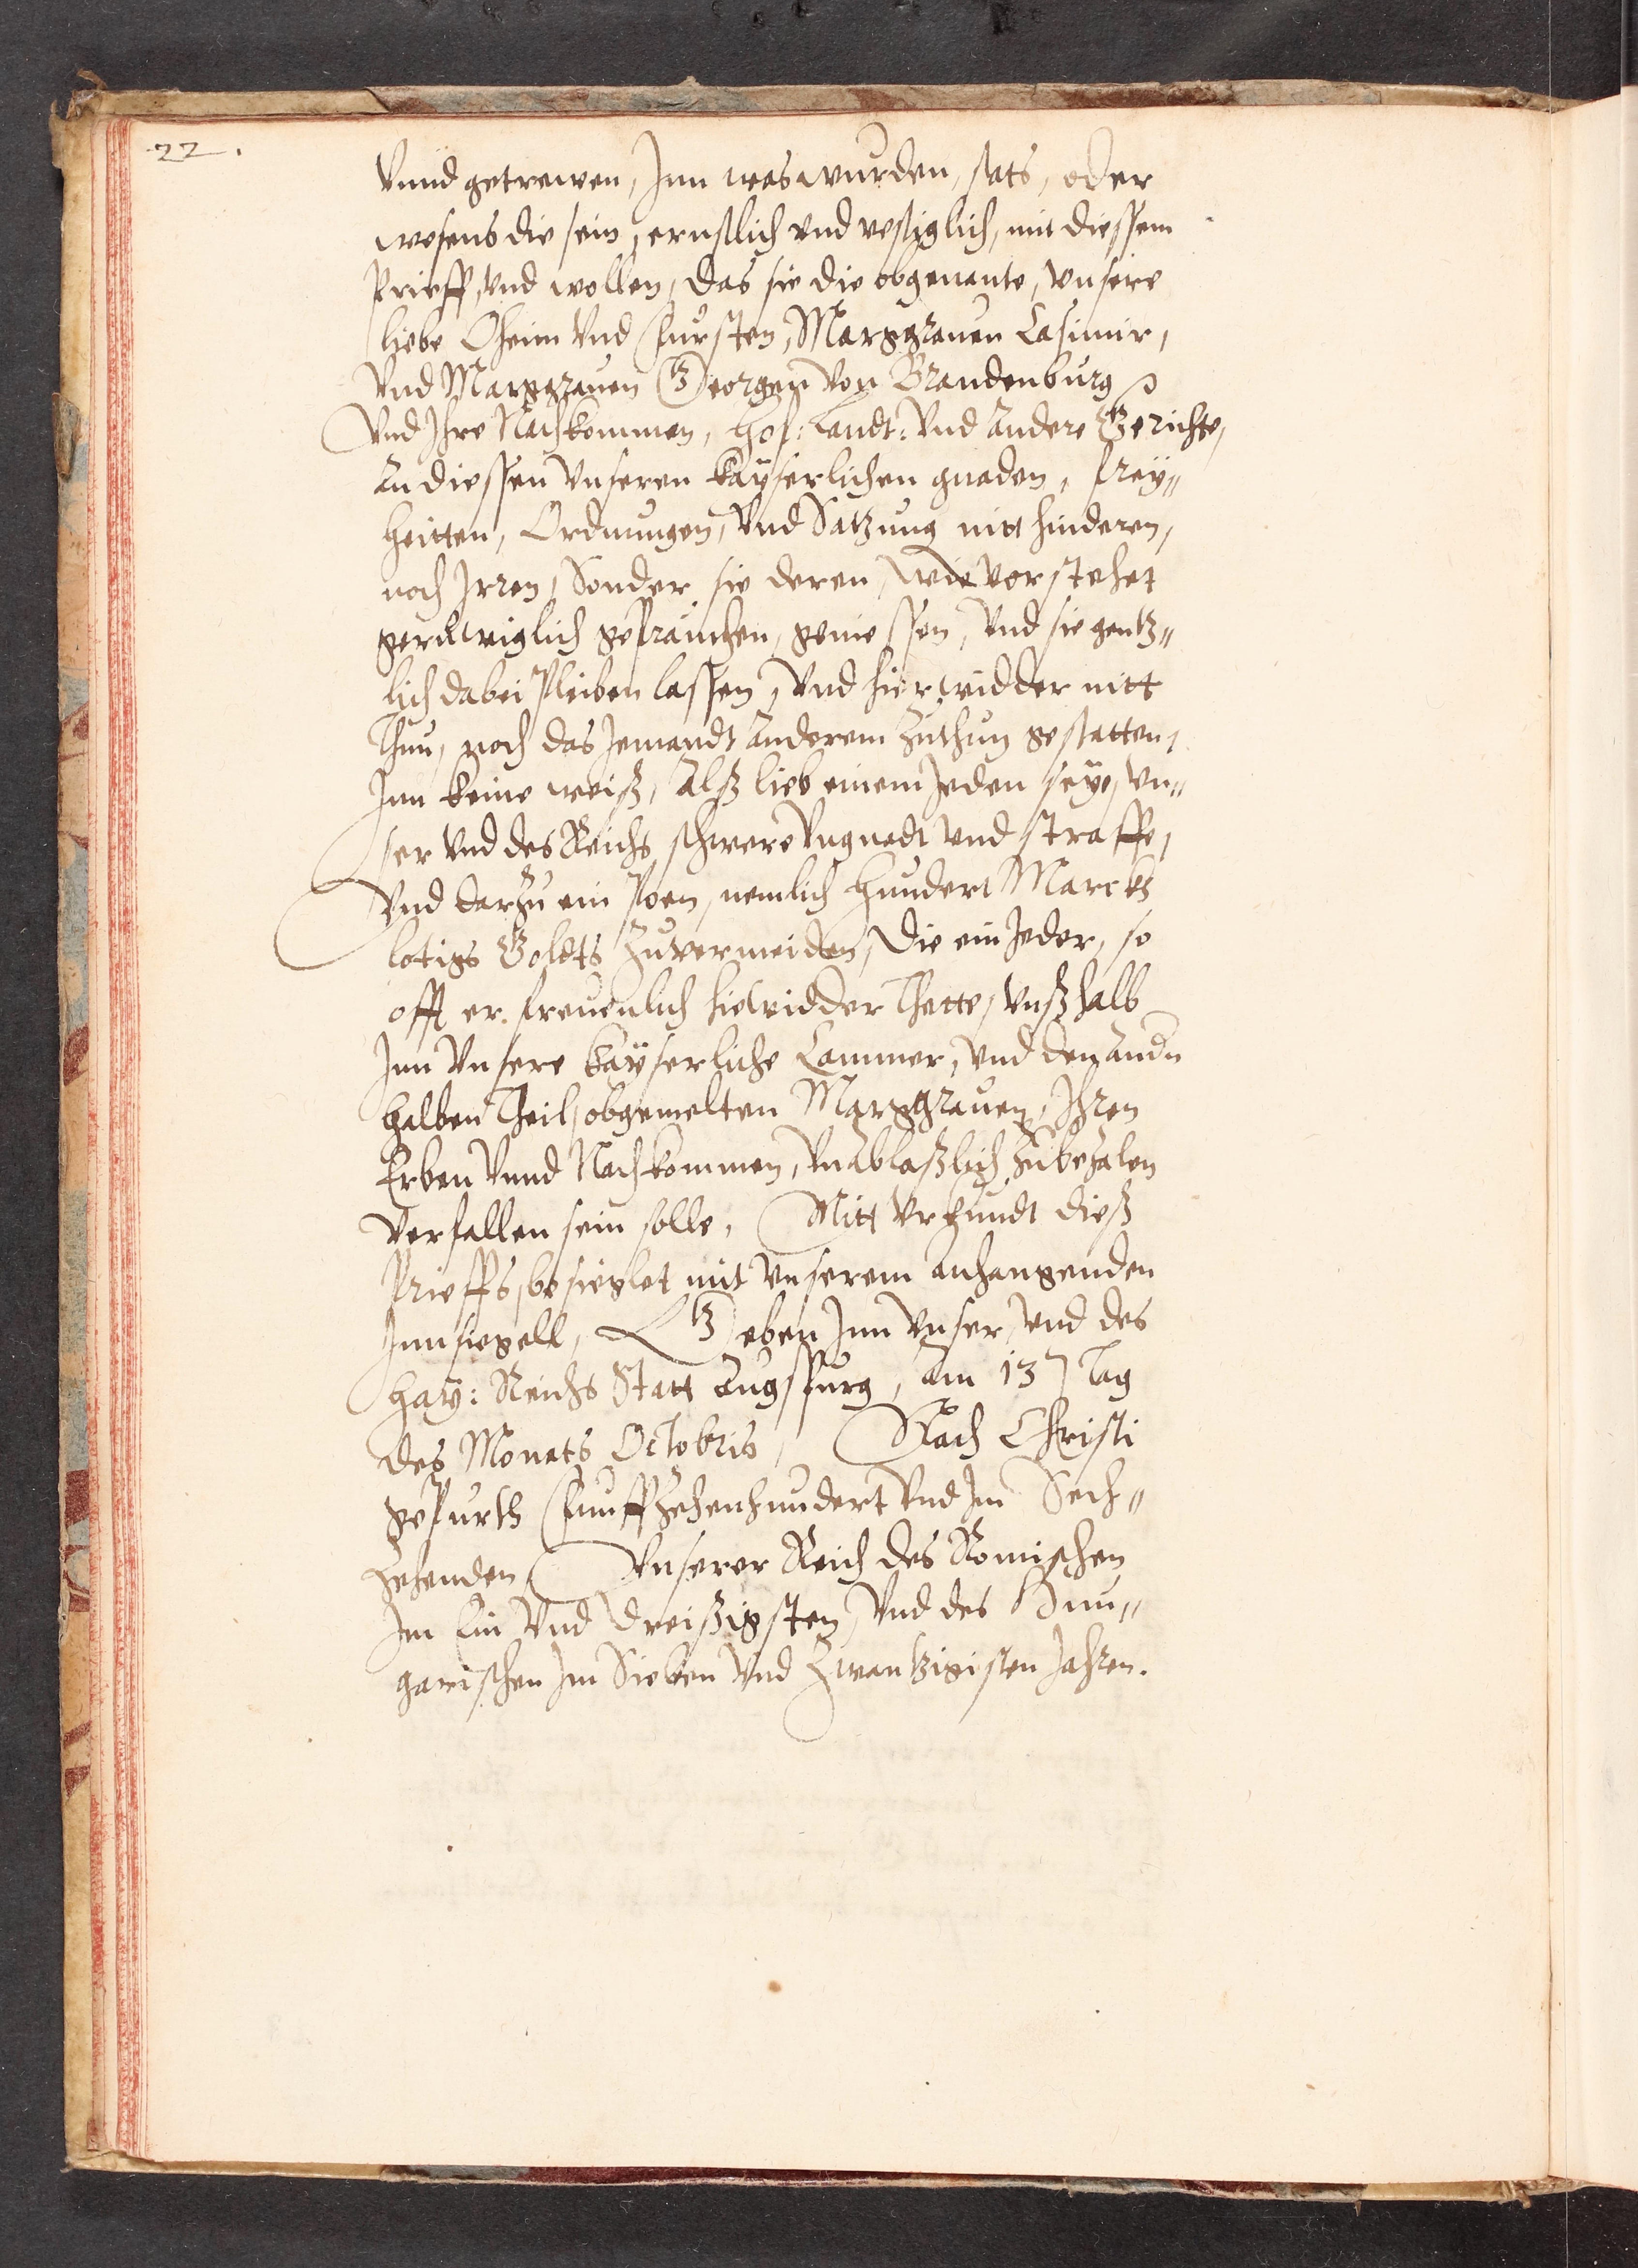 22.
Vnnd getrewen, Inn was wurden, stats, oder
wesens die sein, ernstlich vnd vestiglich, mit diessem
Prieff, vnd wollen, das sie die obgenante, vnsere
liebe Oheim vnd Fursten, Marggrauen Casimir,
Vnd Marggrauen Georgen von Brandenburg
Vnd Ihre Nachkommen, Hof: Landt: Vnd andere Gerichte,
an diessen vnseren kayserlichen gnaden, frey„
heitten, Ordnungen, vnd Satzung nitt hinderen,
noch Irren, Sonder sie deren, wie vorstehet
geruwiglich gebrauchen, geniessen, vnd sie gentz„
lich dabei Pleiben lassen, vnd hierwidder nitt
Thun, noch das Jemandt anderem zuthun gestatten,
Inn keine weiß, Alß lieb einem Jeden seye, vn„
ser vnd des Reichs schwere vngnadt vnd straffe,
Vnd darzu ein Poen, nemlich hundert Marckh
lotigs Goldts zuvermeiden, Die ein Jeder, so
offt er freuenlich hiewidder Thette, vnß halb
Inn vnsere kayserliche Cammer, vnd den andn
halben Theil, obgemelten Marggrauen, Ihren
Erben vnnd Nachkommen, vnablaßlich zubezalen
verfallen sein solle, Mitt vrkundt dieß
Prieffs, besieglet mit vnserem anhangenden
Innsiegell, Geben Inn vnser, vnd des
Hay: Reichs Statt Augspurg, am 13 Tag
des Monats Octobris, Nach Christi
gepurth Funffzehenhundert vnd Im Sech„
zehenden, Vnserer Reich des Romischen
Im Ein vnd dreißigsten, vnd des Hun„
garischen Im Sieben vnd Zwantzigisten Jahren.